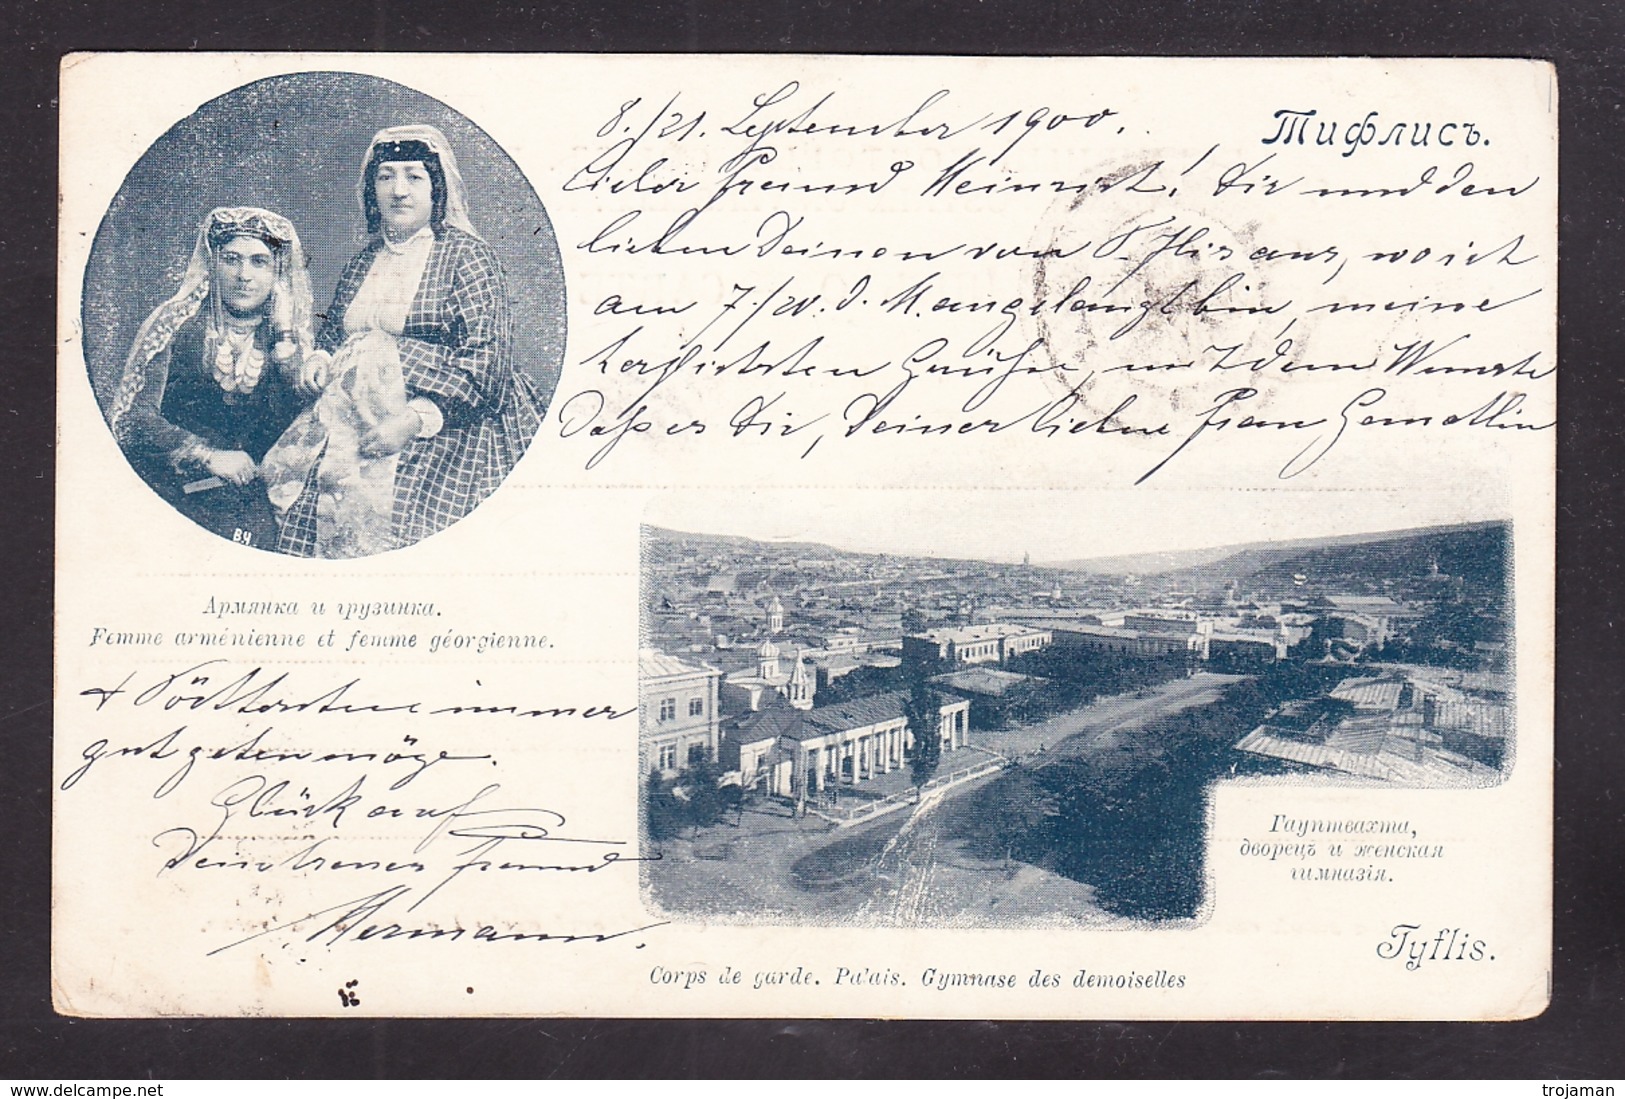 8./21. September 1900.
Тифлисъ.
Lieber Freund Heinrich! Dir und den
lieben Deinen von Tiflis aus, wo ich
am 7./20. d. M. angelangt bin, meine
herzlichsten Grüße, mit dem Wunsche
daß es Dir, Deiner lieben Frau Gemahlin
В.Ч.
Армянка и грузинка.
Femme arménienne et femme géorgienne.
+ Töchterchen immer
gut gehen möge.
Glück auf
Dein treuer Freund
Hermann.
Гауптвахта,
дворецъ и женская
гимназія.
Tyflis.
Corps de garde. Palais. Gymnase des demoiselles
delcampe.net
trojaman